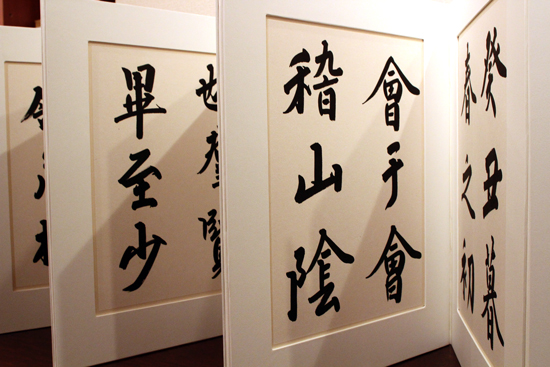 癸丑暮
春之初
會于會
稽山陰
也羣賢
畢至少